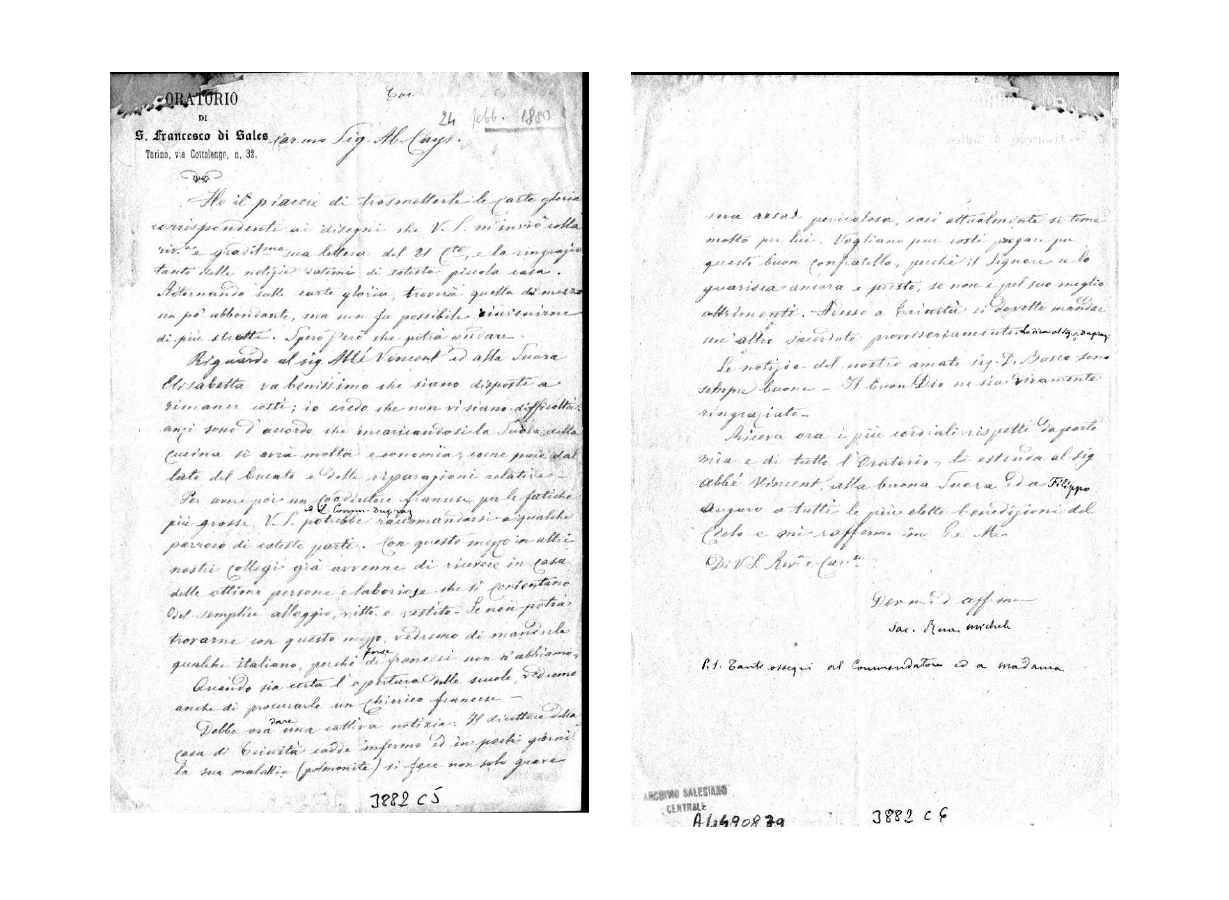 ORATORIO
DI
S. Francesco di Sales
Torino, via Cottolengo, n, 32.
Tor
24 febb. 1880
Car.mo Sig. Ab. Cays.
Ho il piacere di trasmetterle le carte gloria
corrispondente ai disegni che V. S. m'inviò colla
riv.ma e gradit.ma sua lettera del 21 Cte, e la ringrazio
tanto delle notizie datemi di cotesta piccola casa.
Ritornando sulle carte gloria, troverà quella di mezzo
un po' abbondante, ma non fu possibile rinvenirne
di più strette. Spero però che potrà andare.
Riguardo al sig Abbé Vincent ed alla Suora
Elisabetta va benissimo che siano disposti a
rimaner costì; io credo che non vi siano difficoltà:
anzi sono d'accordo che incaricandosi la Suora della
cucina si avrà molta economia; come pure dal
lato del bucato e delle riparazioni relative -
Per avere poi un coadiutore francese per le fatiche
più grosse, V. S. potrebbe raccomandarsi a qualche
al Comm. Dupraz
parroco di coteste parti. Con questo mezzo in altri
nostri collegi già avvenne di ricevere in casa
delle ottime persone e laboriose che si contentano
del semplice alloggio, vitto e vestito - Se non potrà
trovarne con questo mezzo, vedremo di mandarle
qualche italiano, perchè forse di francesi non n'abbiamo.
Quando sia certa l'apertura delle scuole, vedremo
anche di procurarle un chierico francese -
Debbo ora dare una cattiva notizia: Il direttore della
casa di Trinità cadde infermo ed in pochi giorni
la sua malattia (polmonite) si fece non solo grave
3882 C5
ma assai pericolosa, così attualmente si teme
molto per lui. Vogliano pur costì pregare per
questo buon confratello, perchè il Signore ce lo
guarisca ancora e presto, se non è pel suo meglio
altrimenti. Adesso a Trinità si dovette mandar
un'altro sacerdote provvisoriamente. Lo dica al Sig. Dupraz
Le notizie del nostro amato sig. D. Bosco sono
sempre buone - Il buon Dio ne sia vivamente
ringraziato -
Riceva ora i più cordiali rispetti da parte
mia e di tutto l'Oratorio, li estenda al sig
abbé Vincent, alla buona Suora ed a Filippo
Auguro a tutti le più elette benedizioni del
Cielo e mi raffermo in G. e M.
Di V. S. Rev.a e Car.ma
Dev.mo ed aff.mo
Sac. Rua Michele
P.S. Tanti ossequi al Commendatore ed a madama
ARCHIVIO SALESIANO
CENTRALE
A4490839
3882 C6